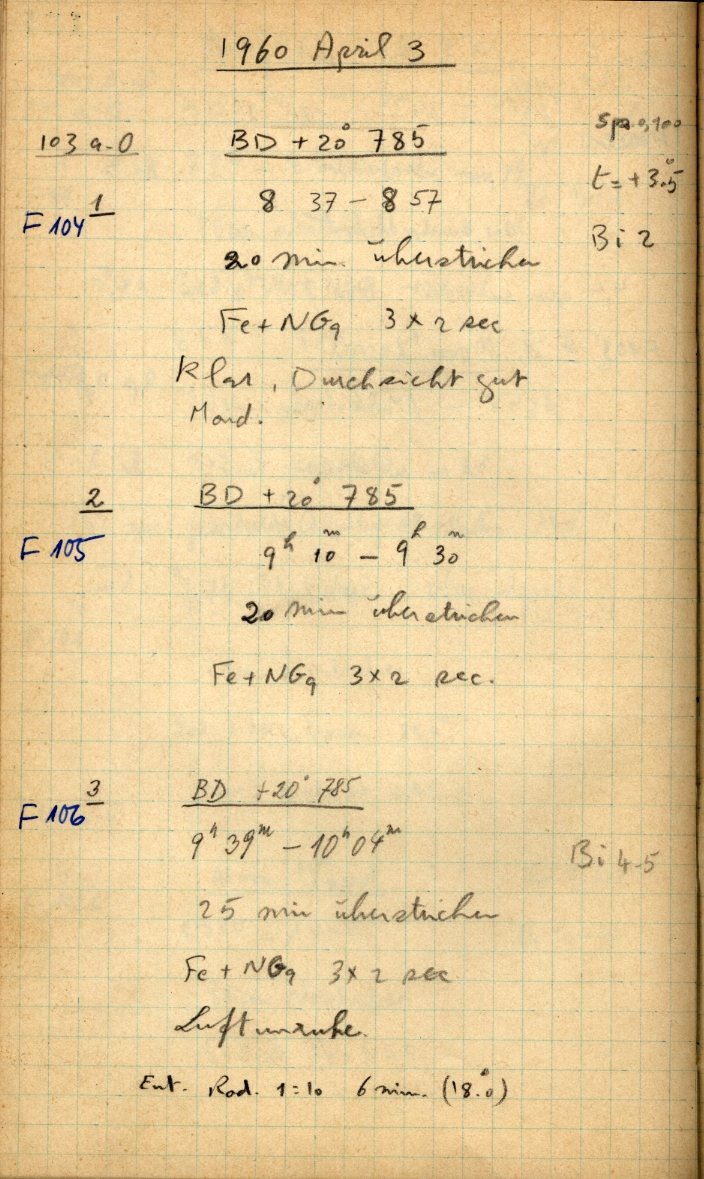 1960 April 3
103 a-O BD +20° 785 Sp. 0,100
1 8 37 – 8 57 t = +3°.5
F 104 Bi 2
20 min überstrichen
Fe + NG9 3 × 2 sec
Klar, Durchsicht gut
Mond.
2 BD +20° 785
F 105 9h 10m – 9h 30m
20 min überstrichen
Fe + NG9 3 × 2 sec.
3 BD +20° 785
F 106 9h 39m – 10h 04m Bi 4-5
25 min überstrichen
Fe + NG9 3 × 2 sec
Luftunruhe.
Ent. Rod. 1:10 6 min. (18.°0)